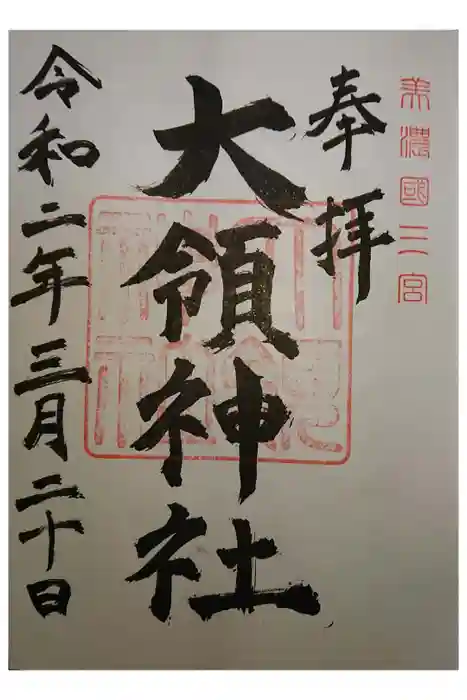 美濃國三宮
奉拝
大領神社
令和二年三月二十日